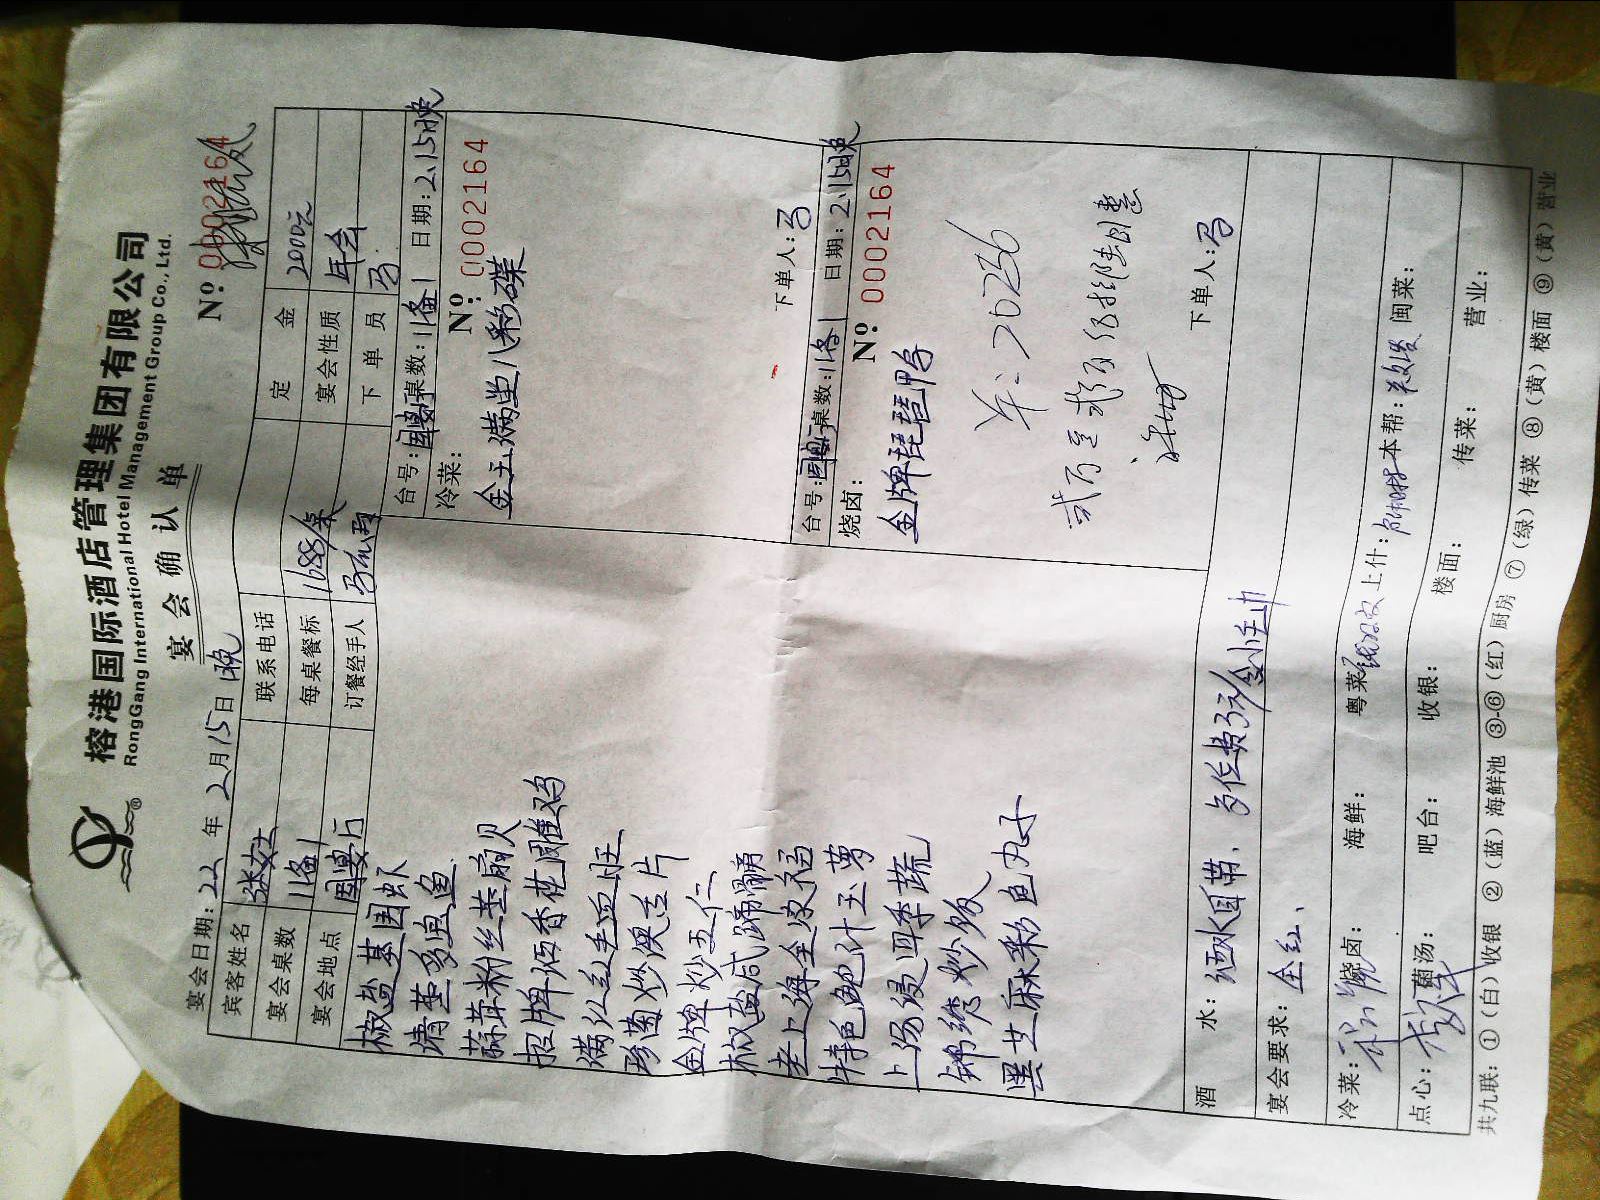 榕港国际酒店管理集团有限公司
RongGang International Hotel Management Group Co., Ltd.
宴会确认单
宴会日期: 22 年 2 月 15 日 晚
Nº: 0002164
宾客姓名 张女士 联系电话 定金 2000元
宴会桌数 11备1 每桌餐标 1688/桌 宴会性质 年会
宴会地点 国宴厅 订餐经手人 下单员 马
椒盐基围虾
清蒸多宝鱼
蒜蓉粉丝蒸扇贝
招牌酒香花雕鸡
满江红毛血旺
珍菌炒澳舌片
金牌炒五仁
椒盐咸蹄髈
坐上海全家福
特色鲍汁玉萝
上汤浸四季蔬
锦绣炒饭
黑芝麻彩色丸子
台号: 国宴厅 桌数: 11备1 日期: 2.15晚
冷菜: Nº: 0002164
金玉满堂八彩碟
下单人: 马
台号: 国宴厅 桌数: 11备1 日期: 2.15晚
烧卤: Nº: 0002164
金牌琵琶鸭
20256
下单人: 马
酒水:
宴会要求: 全红、
冷菜: 烧卤: 海鲜: 粤菜: 上什: 本帮: 闽菜:
点心: 菌汤: 吧台: 收银: 楼面: 传菜: 营业:
共九联: ①(白)收银 ②(蓝)海鲜池 ③-⑥(红)厨房 ⑦(绿)传菜 ⑧(黄)楼面 ⑨(黄)营业